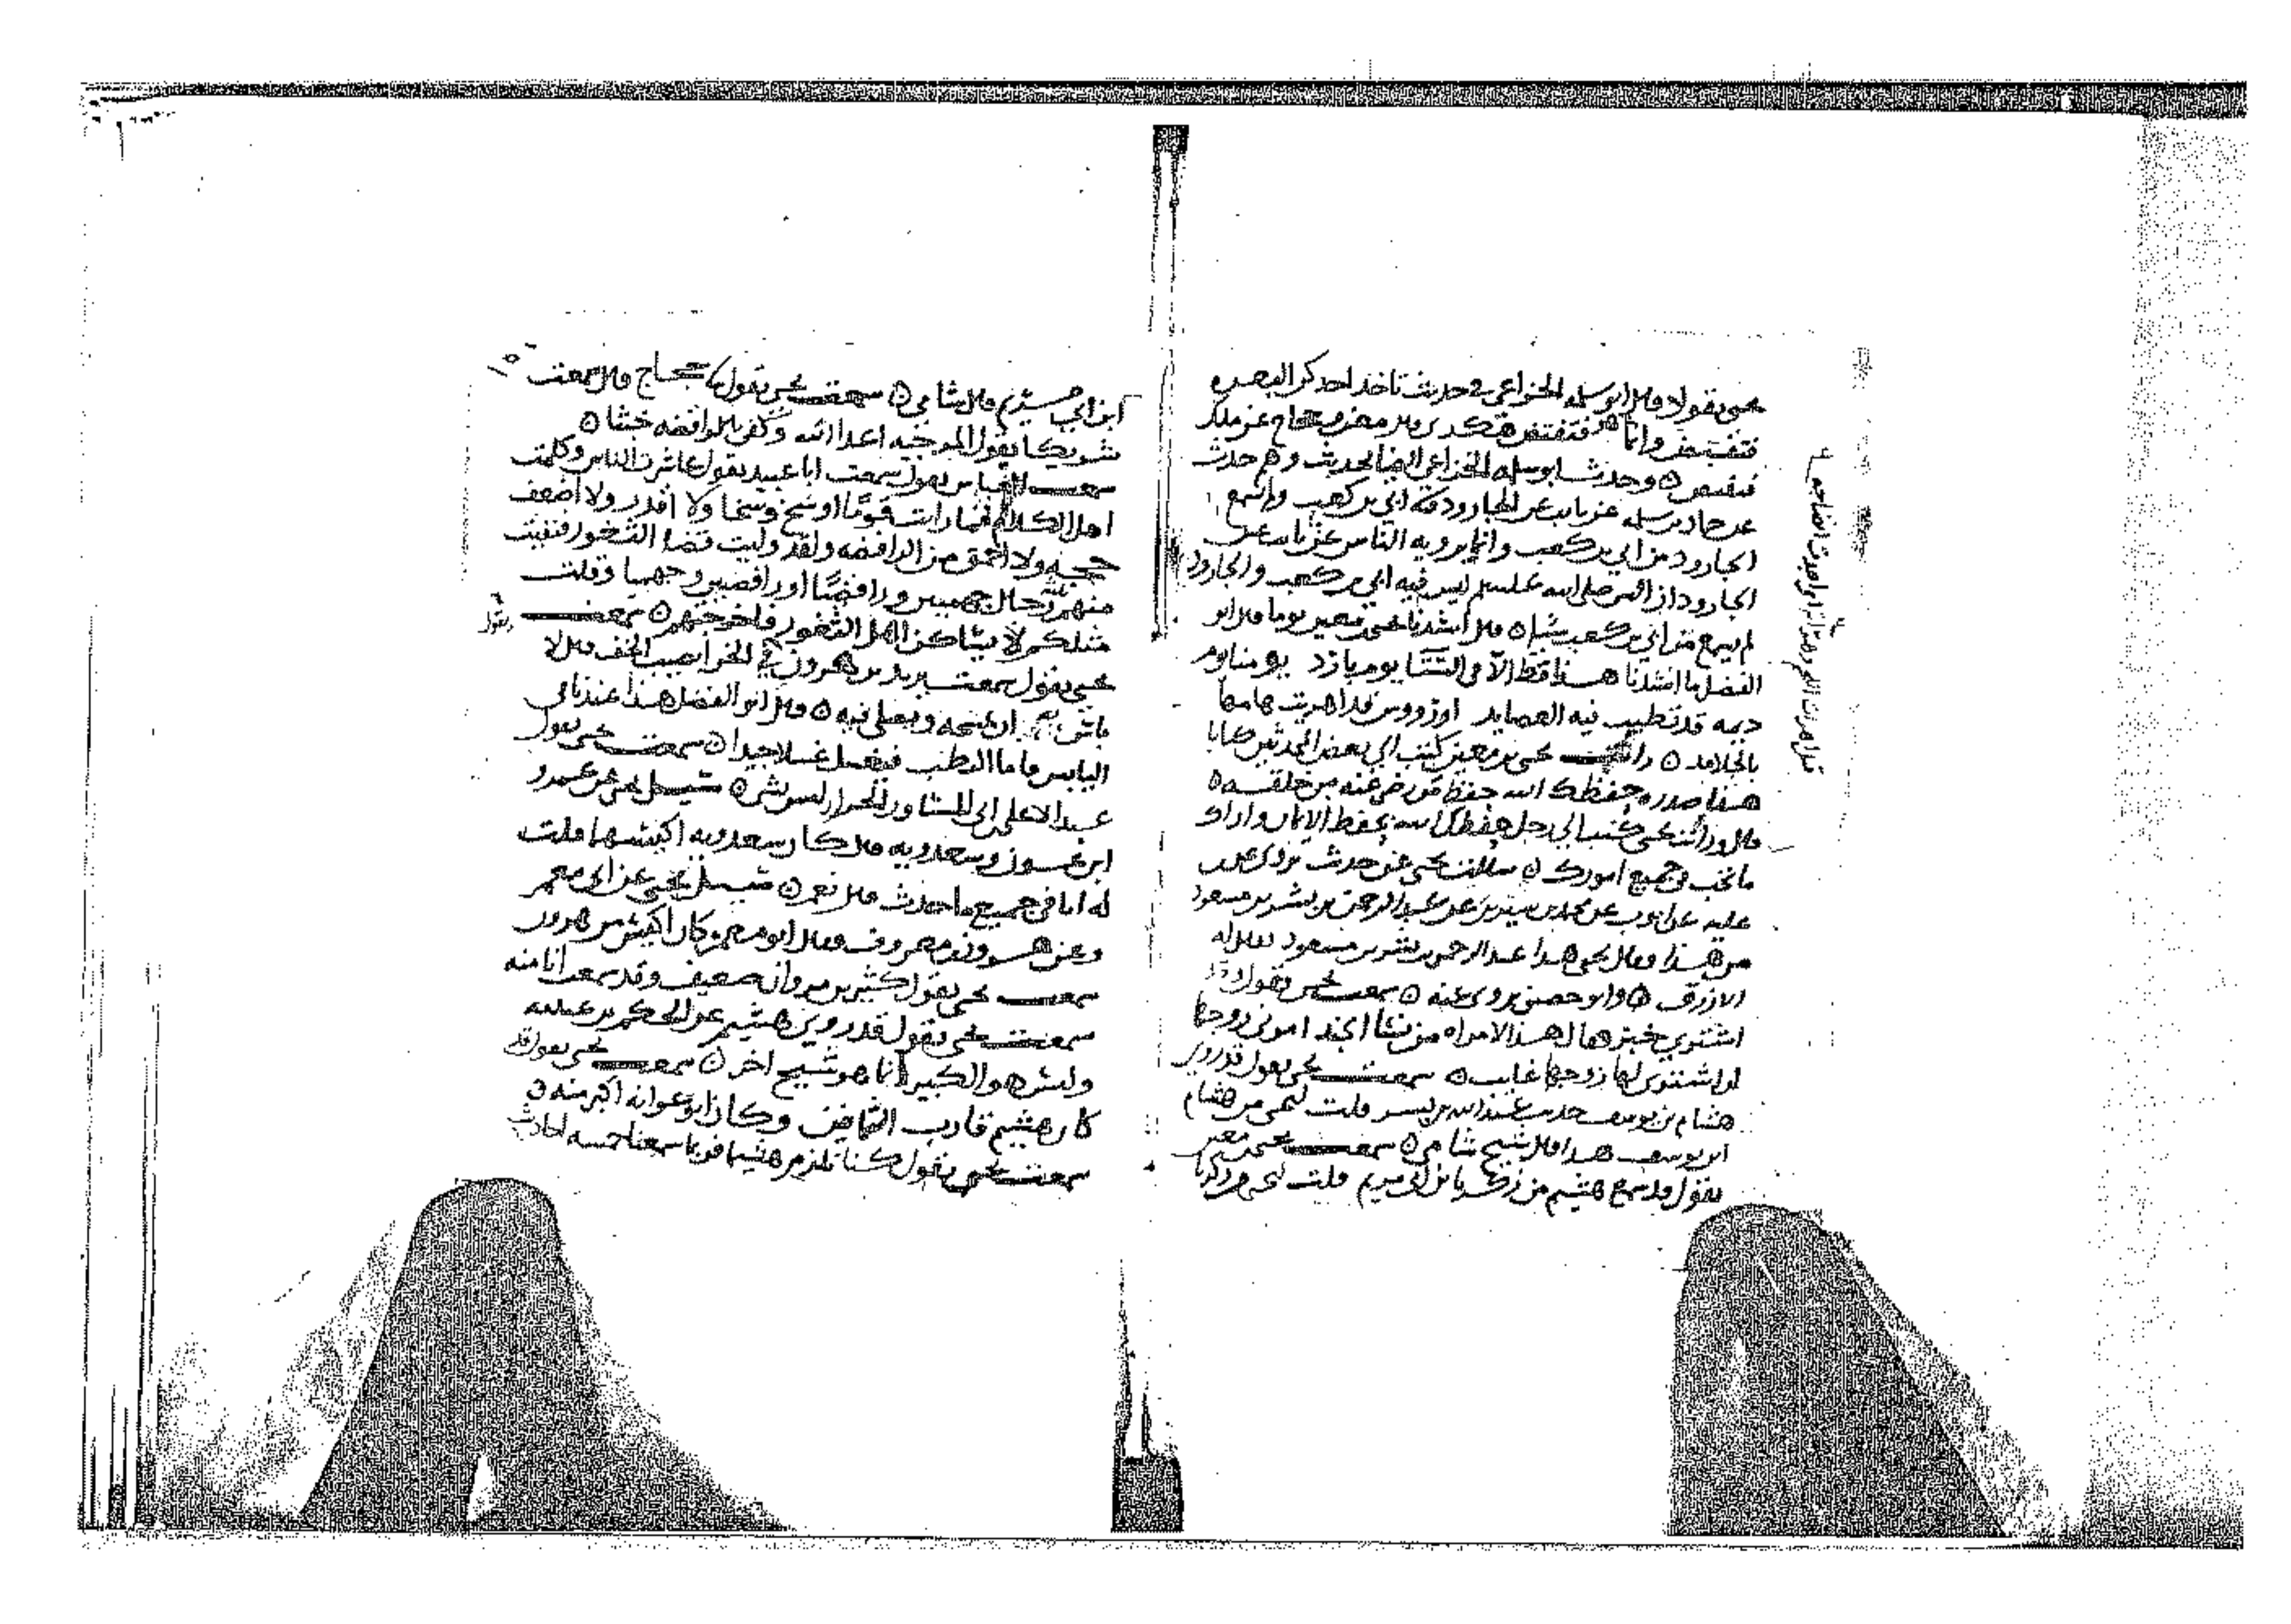 يحيى يقول قال ابو سلمه الخزاعي في حديث تاخذ احدكم البعره
فتفت بعر وانما هو فتفتض هكذي قال معن وحجاج عن ملك
فتفتض ه وحدث ابو سلمه الخزاعي ايضا بحديث وهم حدث
عن حماد بن سلمه عن ثابت عن الجارود قه ابي بن كعب ولم يسمع
الجارود من ابي بن كعب وانما يرويه الناس عن ثابت عن
الجارود ان النبي صلى الله عليه وسلم ليس فيه ابي بن كعب والجارود
لم يسمع من ابي بن كعب شيا ه قال انشدنا يحيى بن معين يوما قال ابو
الفضل ما انشدنا هذا قط الا في الشتا يوم بارد يومنا يوم
ديمه قد تطيب فيه العصايد اوزووس قد اهريت هامها
بالجلامد ه رايت يحيى بن معين كتب الى بعض المحدثين كتابا
هذا صدره حفظك الله حفظ من رضي عنه من خلقه ه
قال ورايت يحيى كتب الى رجل حفظك الله بحفظ الايمان واراك
ما تحب في جميع امورك ه سالت يحيى عن حديث يروى عن ابن
عليه عن ايوب عن محمد بن سيرين عن عبد الرحمن بن بشر بن مسعود
من هذا فقال يحيى هذا عبد الرحمن بن بشر بن مسعود يقال له
الازرق ه وابو حصين يروي عنه ه سمعت يحيى يقول
اشتري بخبزهما لهذا الامراه من نسا الجند امون زوجها
او اشتري لها زوجها غايب ه سمعت يحيى يقول قد روى
هشام بن يوسف حديث عبد الله بن قلت ليحيى من هشام
ابن يوسف هذا قال شيخ شامي ه سمعت يحيى بن معين
يقول قد سمع هشيم من زكريا بن ابي مريم قلت ليحيى من زكريا
قد اهريت اللحم وهرّاته اذا انضاجها
ابن ابي مريم قال شامي ه سمعت يحيى يقول نا حجاج قال سمعت
شريكا يقول المرجيه اعدا الله وكفى بالرافضه خبثا ه
سمعت العباس يقول سمعت ابا عبيد يقول عاشرت الناس وكلمت
اهل الكلام فما رايت قوما اوسخ وسخا ولا اقذر ولا اضعف
حجه ولا احمق من الرافضه ولقد وليت قضا الثغور فنفيت
منهم ثلثه رجال جهميين ورافضيا او رافضيين وجهميا وقلت
مثلكم لا يساكن اهل الثغور فاخرجتهم ه سمعت
يحيى يقول سمعت يزيد بن هرون في الخرا يصيب الخف قال لا
باس ان يمسحه ويصلي فيه ه قال ابو الفضل هذا عندنا في
اليابس فاما الرطب فيغسل غسلا جيدا ه سمعت يحيى يقول
عبد الاعلى بن ابي المساور الجرار ليس بشي ه سيل يحيى عن عمرو
ابن عون وسعدويه قال كان سعدويه اكيسهما قلت
له انا في جميع ما حدث قال نعم ه سيل يحيى عن ابي معمر
وعن هرون بن معروف فقال ابو معمر كان اكيس من هرون
سمعت يحيى يقول كثير بن مروان ضعيف وقد سمعت انا منه
سمعت يحيى يقول قد روى هشيم عن الحكم بن عتيبه
وليس هو الكبير انما هو شيخ اخر ه سمعت يحيى يقول قد
كان هشيم قارب الثمانين وكان ابو عوانه اكبر منه ه
سمعت يحيى يقول كنا نلزم هشيما فربما سمعنا خمسه احاديث